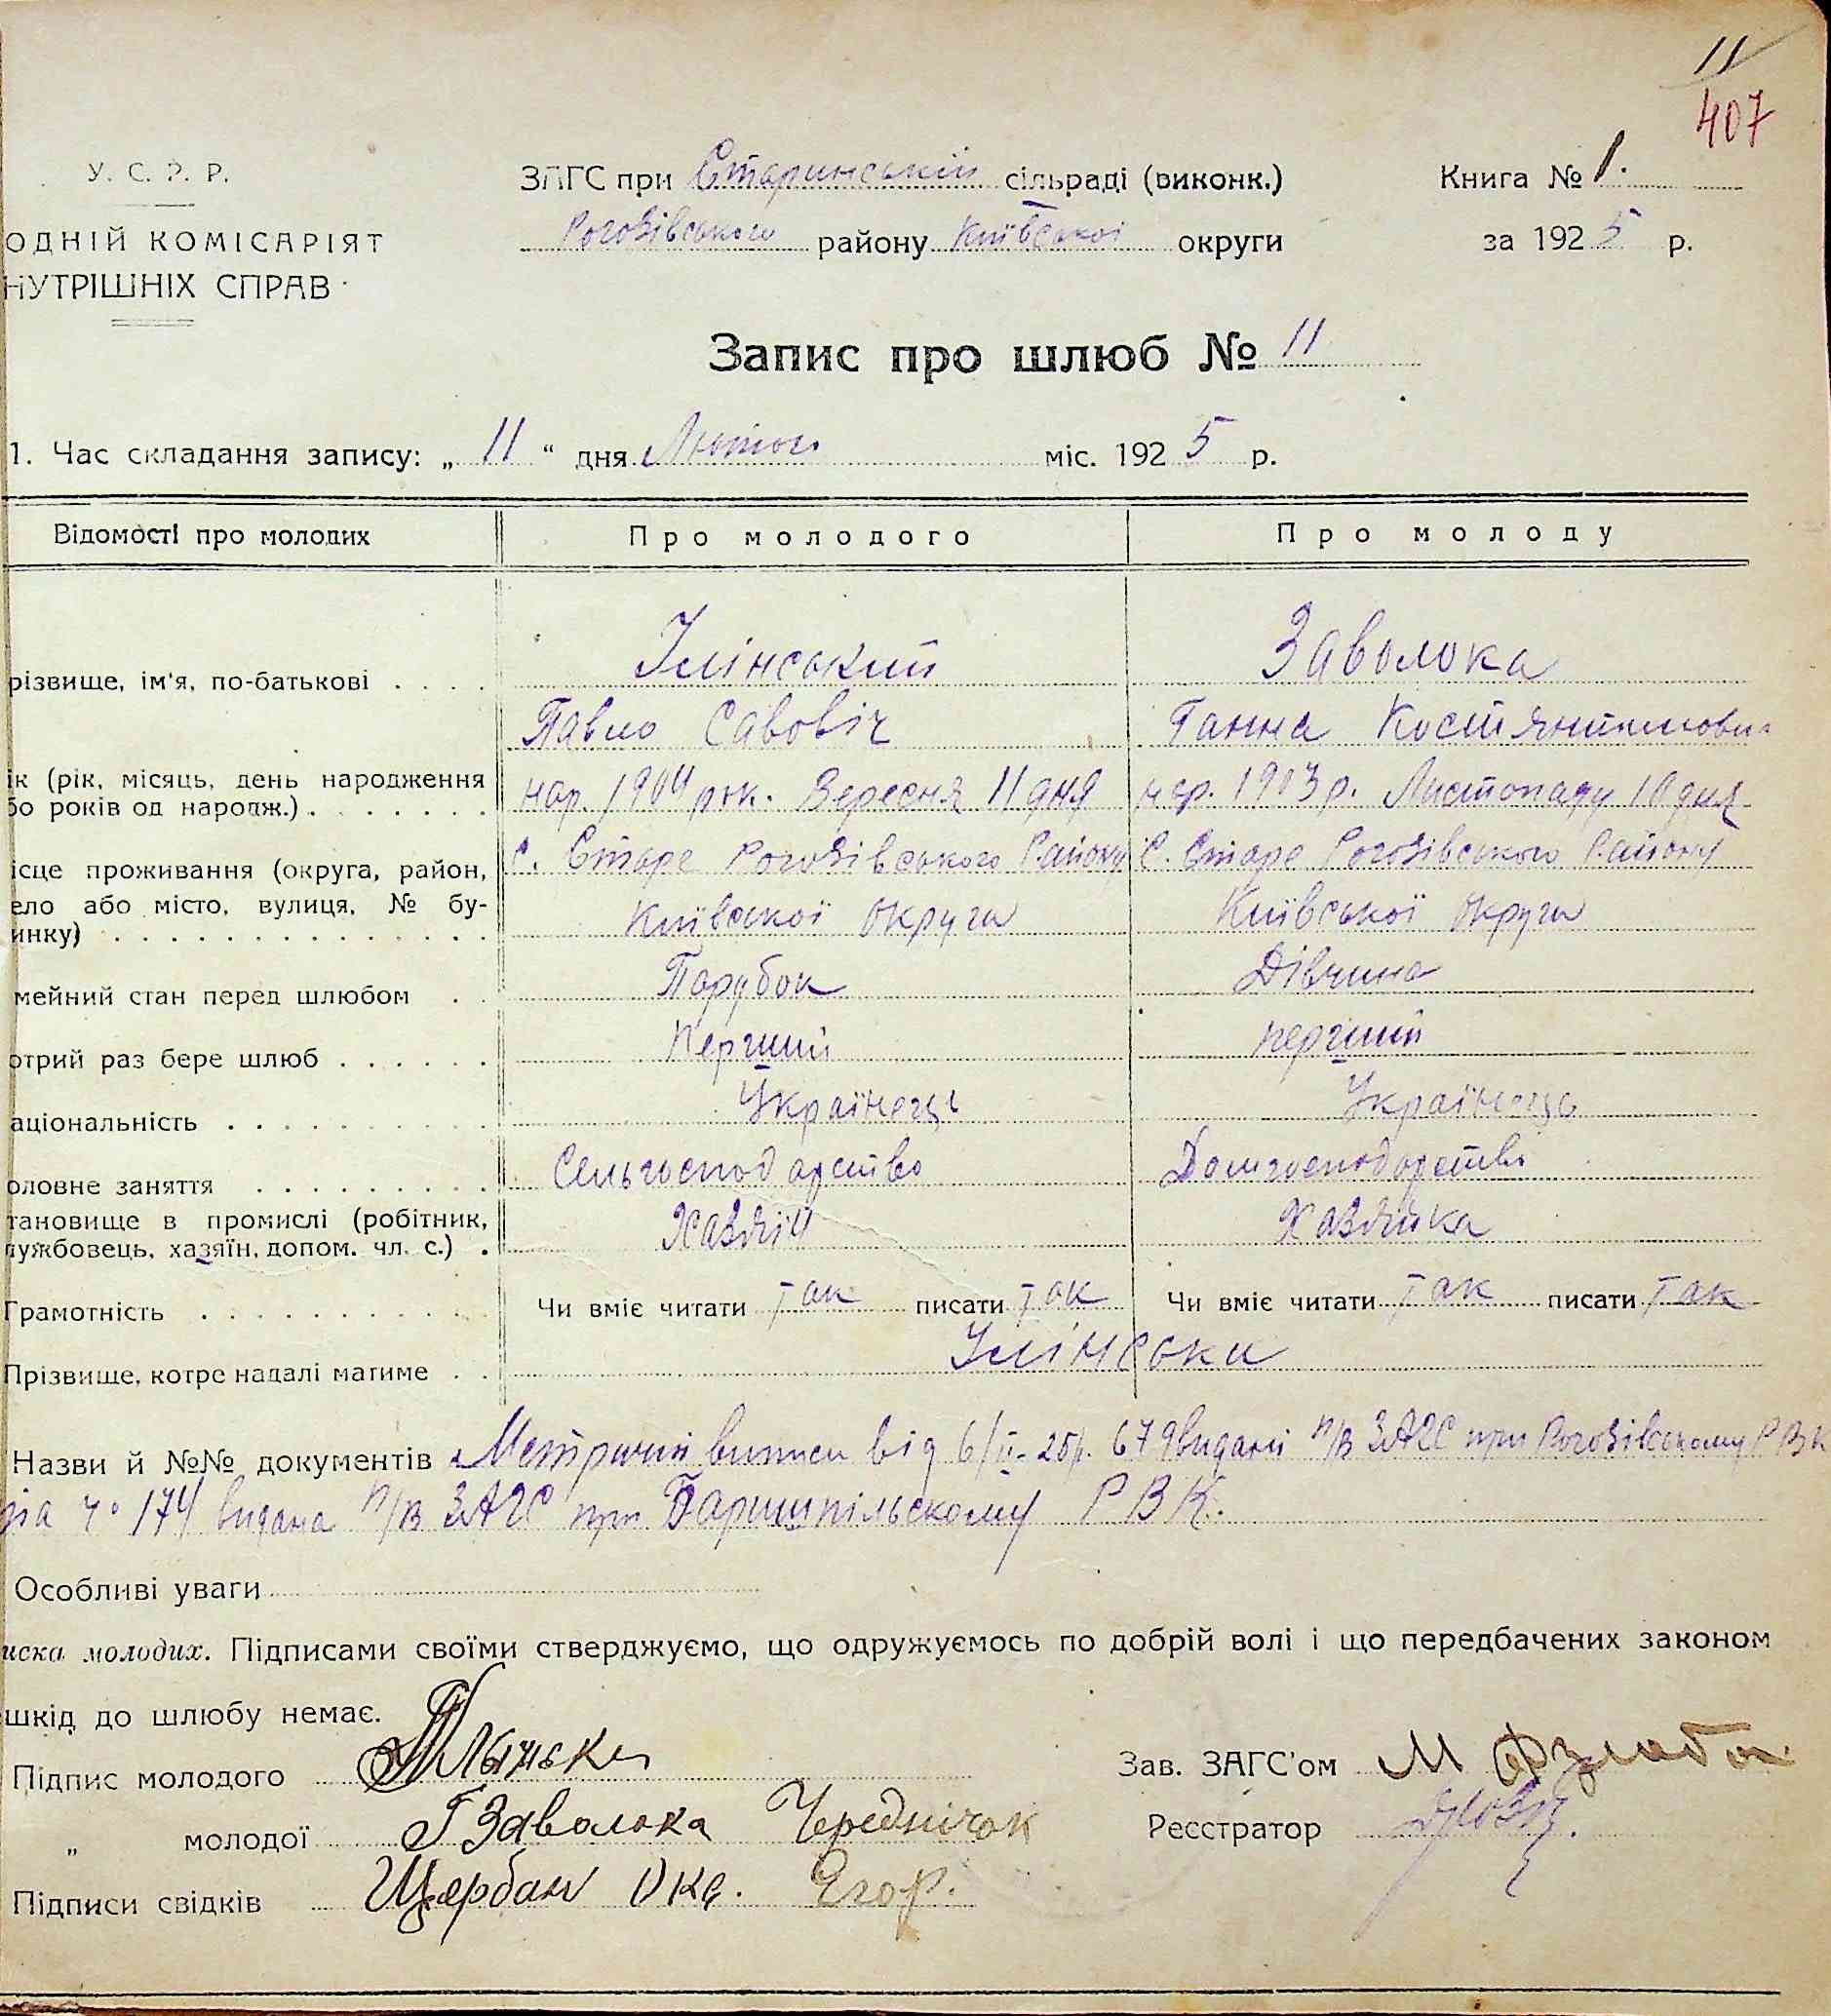 11
407
У. С. Р. Р.
ЗАГС при Старинській сільраді (виконк.)
Книга № 1.
ОДНІЙ КОМІСАРІЯТ
Рогозівського району Київської округи
за 1925 р.
НУТРІШНІХ СПРАВ
Запис про шлюб № 11
1. Час складання запису: „ 11 “ дня Лютого міс. 1925 р.
Відомості про молодих
Про молодого
Про молоду
різвище, ім'я, по-батькові . . . .
Ілінський
Заволока
Павло Савовіч
Ганна Костянтинови
ік (рік, місяць, день народження
бо років од народж.) . . . . . . .
нар. 1904 рок. Вересня 11 дня
нар. 1903 р. Листопаду 10 дня
ісце проживання (округа, район,
ело або місто, вулиця, № бу-
инку) . . . . . . . . . . . . . .
с. Старе Рогозівського Району
С. Старе Рогозівського Району
Київської округи
Київської округи
мейний стан перед шлюбом . .
Парубок
Дівчина
отрий раз бере шлюб . . . . . .
Перший
перший
аціональність . . . . . . . . . .
Українець
Українець
оловне заняття . . . . . . . . .
Сельгосподарство
Домгосподарство
тановище в промислі (робітник,
лужбовець, хазяїн, допом. чл. с.) .
Хазяїн
Хазяйка
Грамотність . . . . . . . . . . .
Чи вміє читати так писати так
Чи вміє читати так писати так
Прізвище, котре надалі матиме . .
Ілінськи
Назви й №№ документів Метричні виписи від 6/II-25р. 679 видані п/в ЗАГС при Рогозівському РВК
ч° 174 видана п/в ЗАГС при Баришпільскому Р В К.
Особливі уваги
иска молодих. Підписами своїми стверджуємо, що одружуємось по добрій волі і що передбачених законом
шкід до шлюбу немає.
Підпис молодого
Зав. ЗАГС'ом М
„ молодої Г Заволока Череднічок
Реєстратор
Підписи свідків Щербан Окс. Єгор.